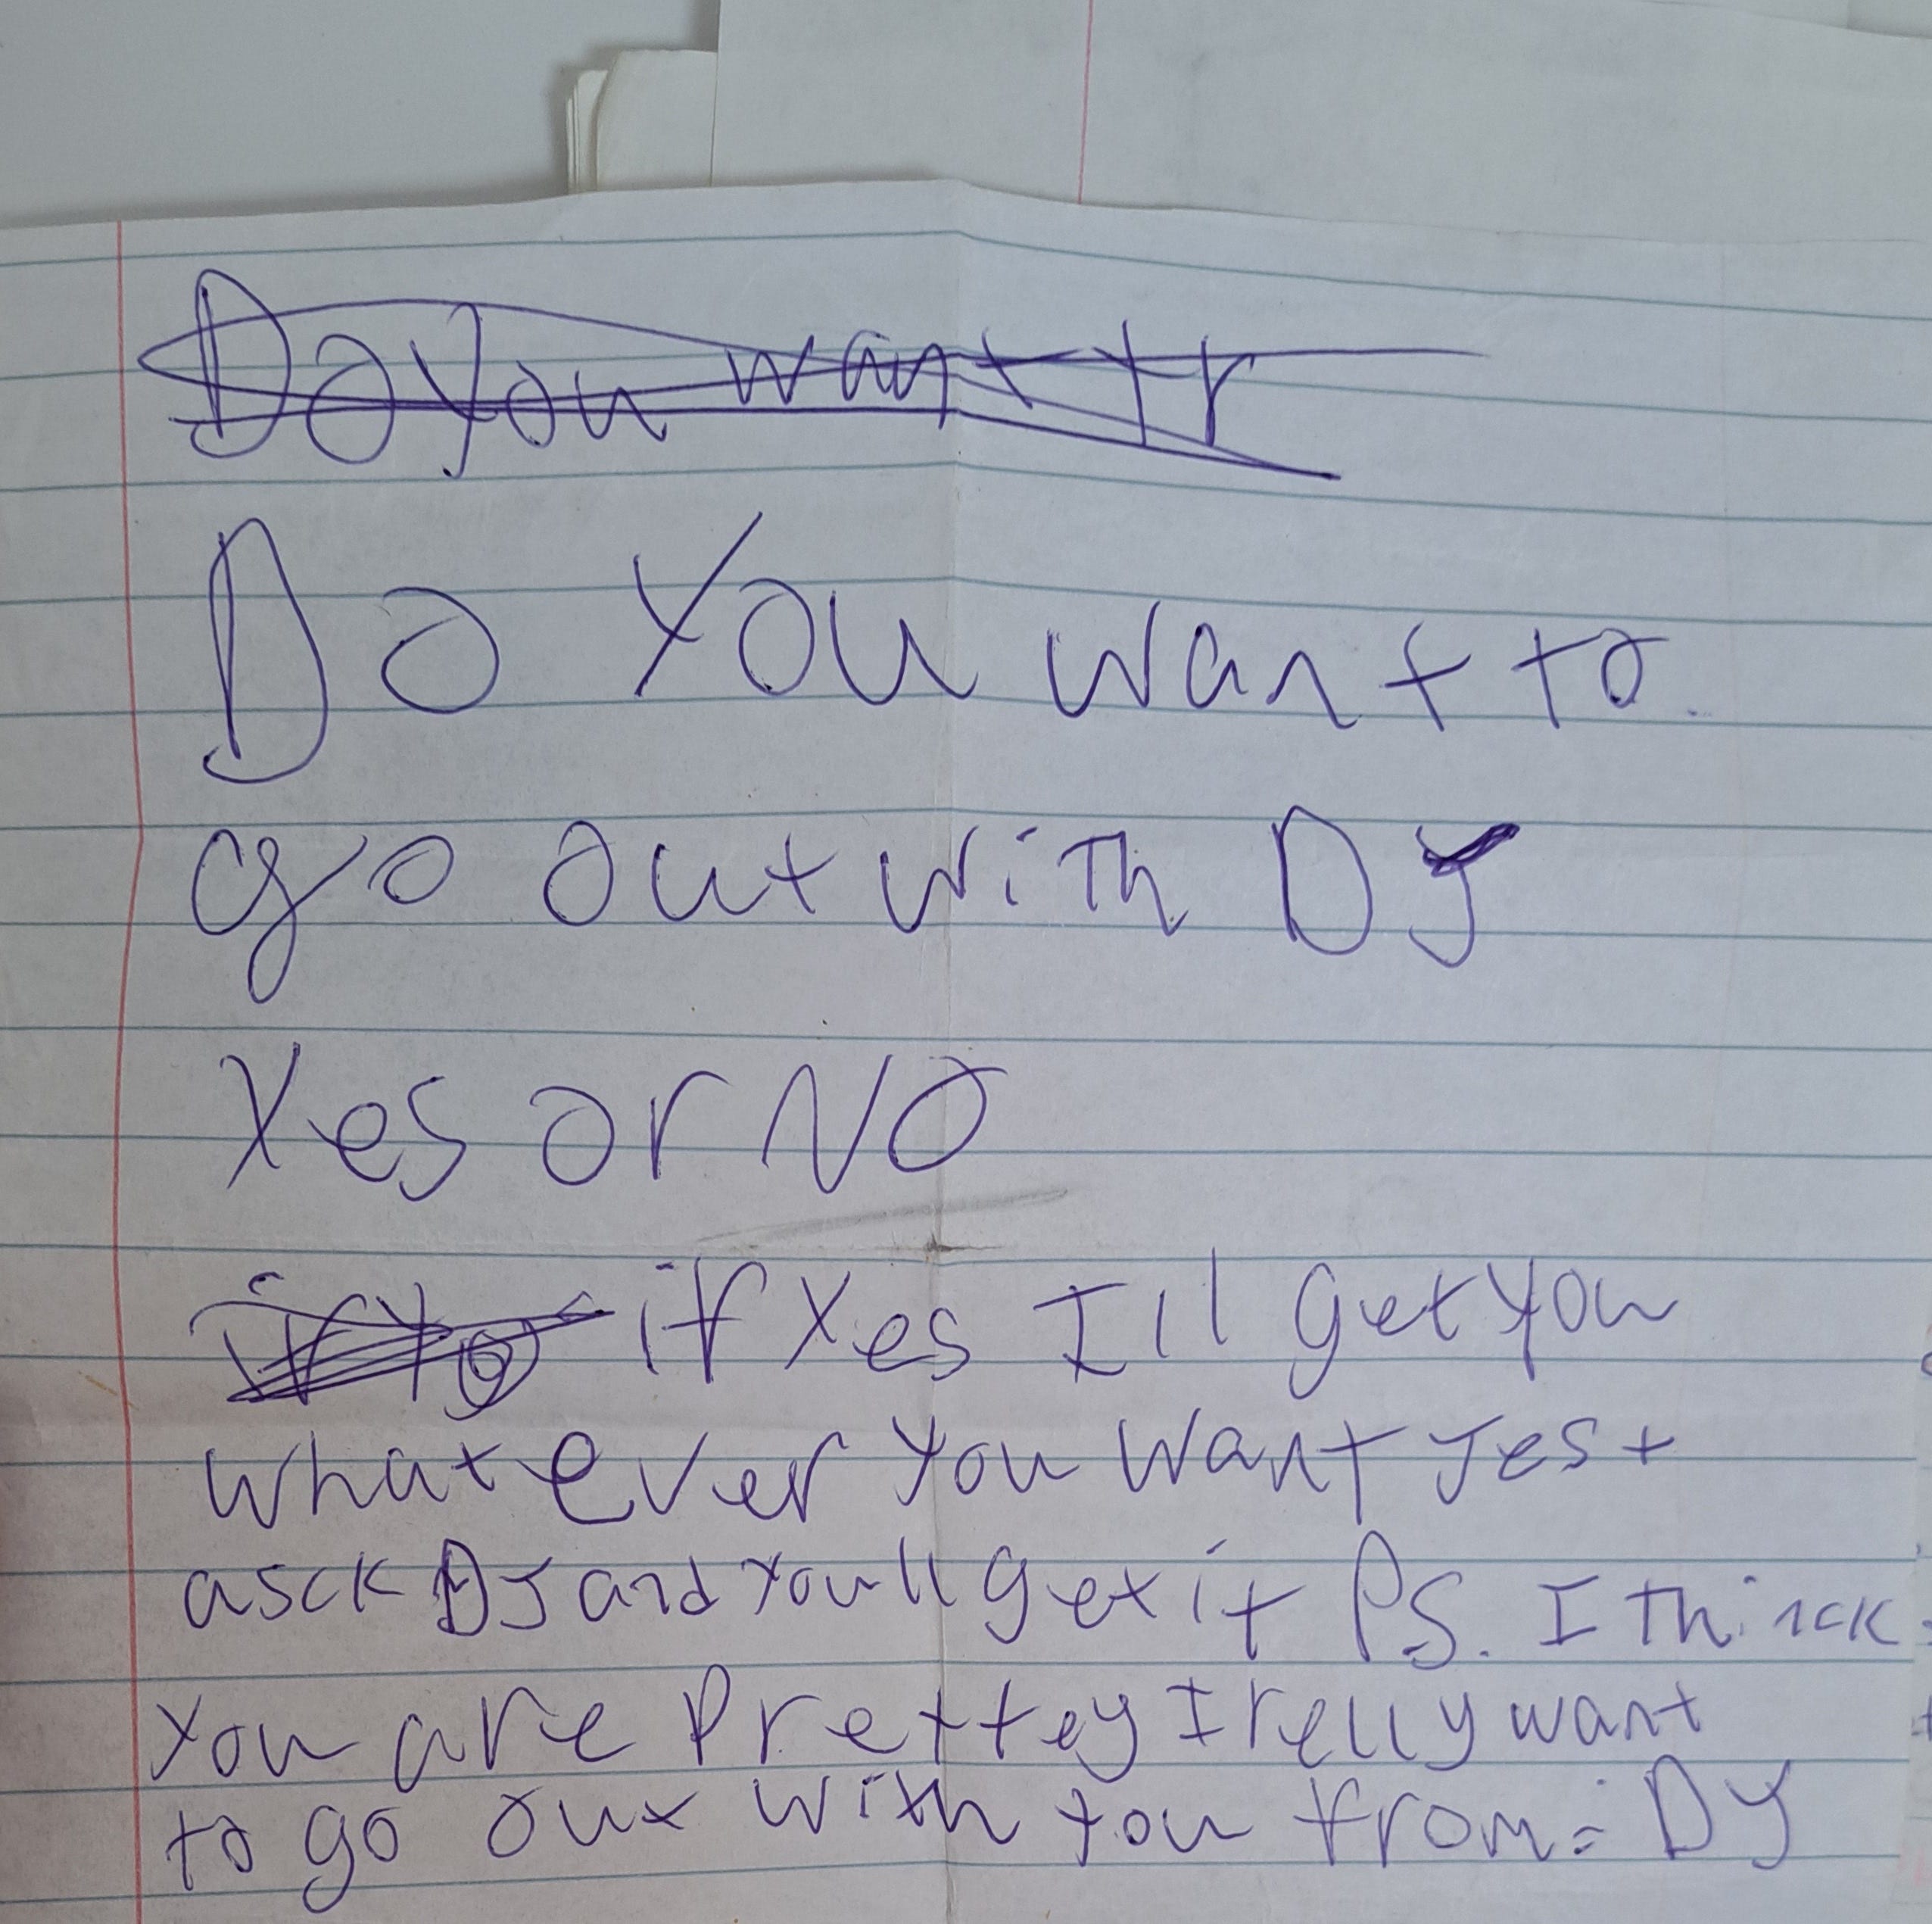 Do you want tr
Do you want to
go out with DJ
Yes or NO
if yo if yes I'll get you
what ever you want Jest
asck DJ and youll get it PS. I thinck
you are Prettey I relly want
to go out with you from: DJ